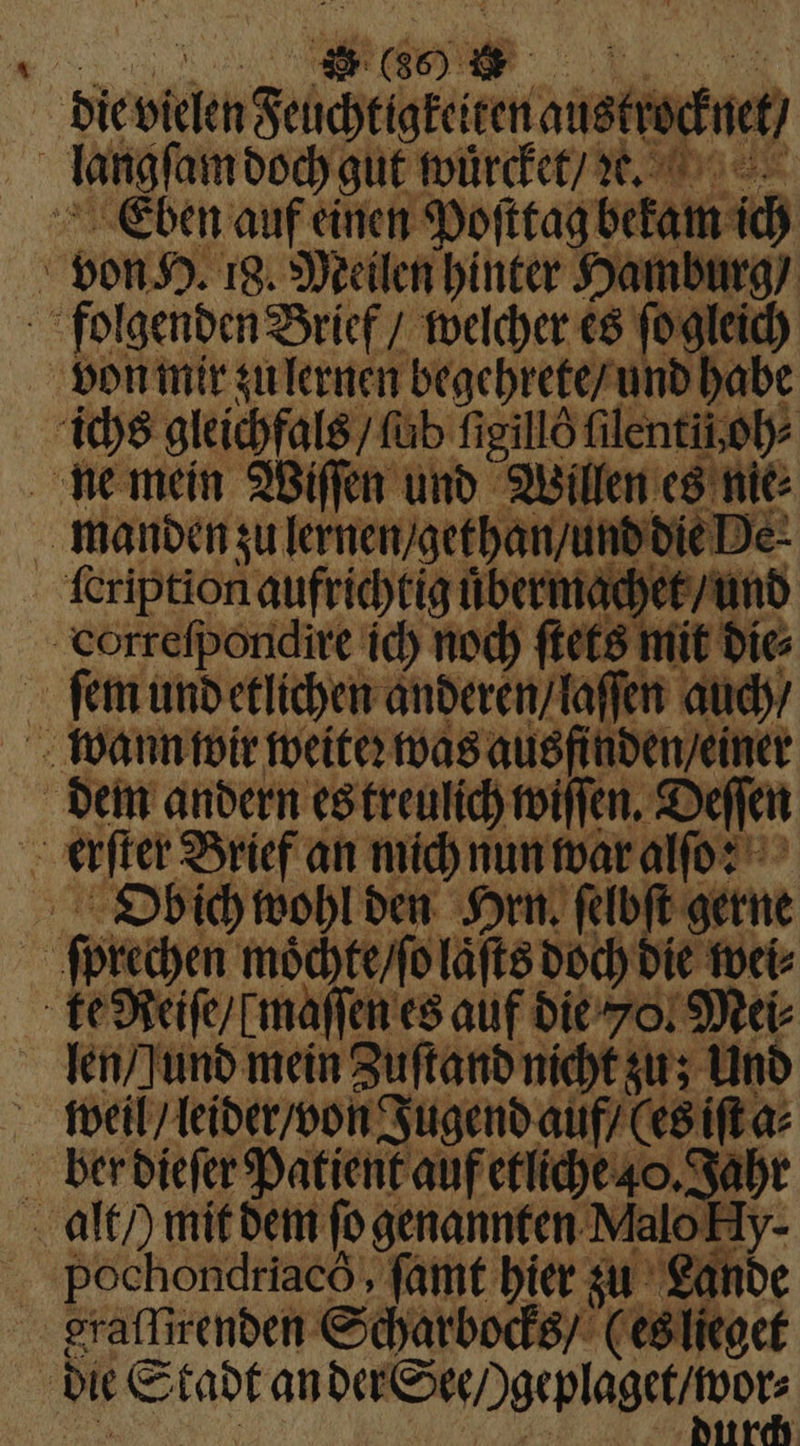 (86)
die vielen Feuchtigkeiten austrocknet/
langſam doch gut wuͤrcket/ ꝛc.
Eben auf einen Poſttag bekam ich
von H. 18. Meilen hinter Hamburg/
folgenden Brief / welcher es ſo gleich
von mir zu lernen begehrete/ und habe
ichs gleichfals / ſub ſigillô ſilentii, oh⸗
ne mein Wiſſen und Willen es nie⸗
manden zu lernen/gethan/und die De-
ſcription aufrichtig uͤbermachet / und
correſpondire ich noch ſtets mit die⸗
ſem und etlichen anderen/laſſen auch/
wann wir weiteꝛ was ausfinden/einer
dem andern es treulich wiſſen. Deſſen
erſter Brief an mich nun war alſo:
Ob ich wohl den Hrn. ſelbſt gerne
ſprechen moͤchte/ſo laͤſts doch die wei⸗
te Reiſe/[maſſen es auf die 70. Mei⸗
len/]und mein Zuſtand nicht zu; Und
weil/ leider/von Jugend auf/ (es iſt a⸗
ber dieſer Patient auf etliche 40. Jahr
alt/) mit dem ſo genannten Malo Hy-
pochondriacô, ſamt hier zu Lande
graſſirenden Scharbocks/ (es lieget
die Stadt an der See/)geplaget/wor⸗
durch